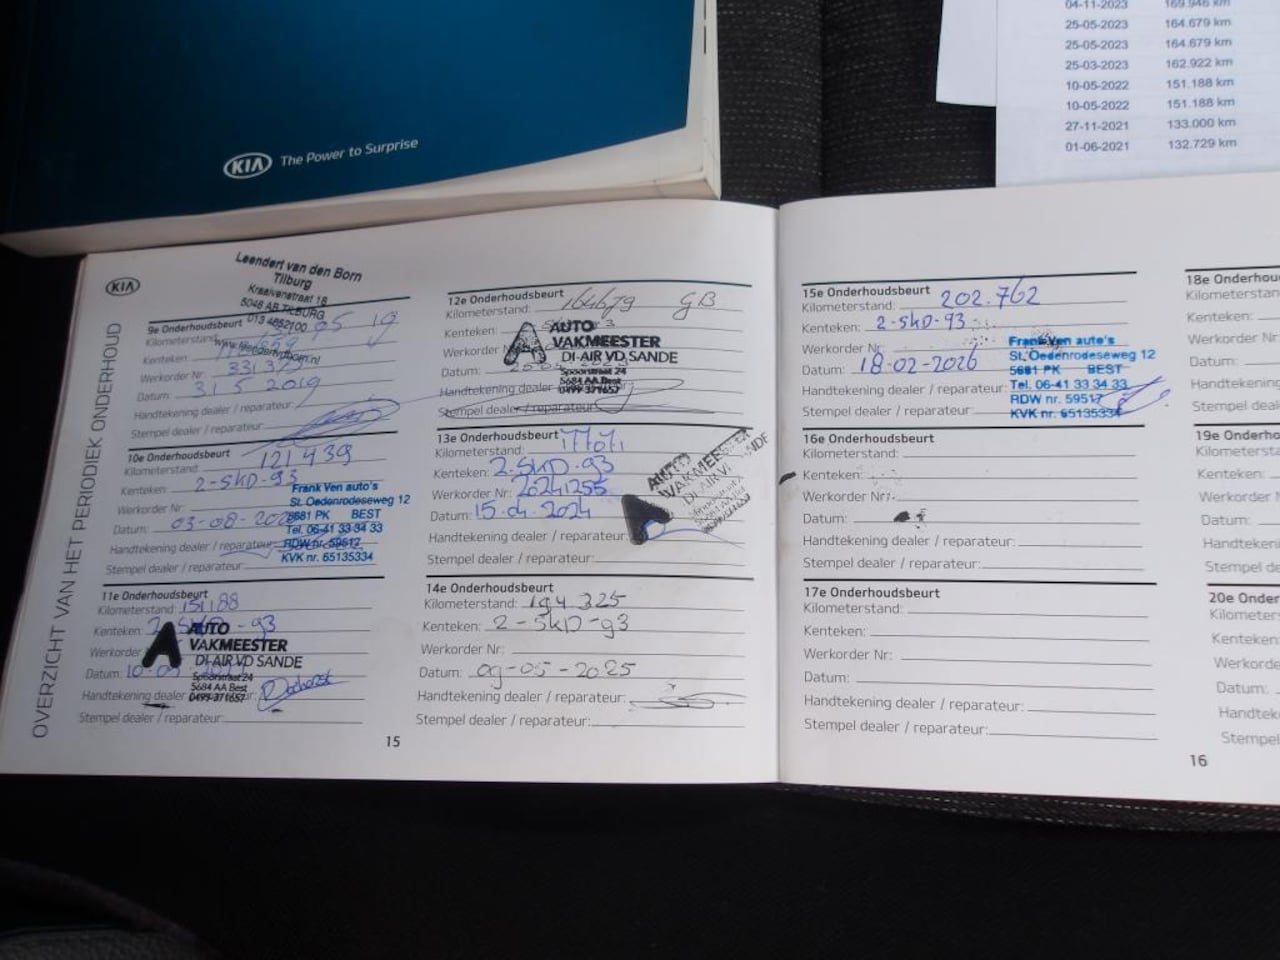 KIA The Power to Surprise
04-11-2023 169.946 km
25-05-2023 164.679 km
25-05-2023 164.679 km
25-03-2023 162.922 km
10-05-2022 151.188 km
10-05-2022 151.188 km
27-11-2021 133.000 km
01-06-2021 132.729 km
KIA
OVERZICHT VAN HET PERIODIEK ONDERHOUD
Leendert van den Born
Tilburg
Kraaivenstraat 18
5048 AB TILBURG
013 4652100
9e Onderhoudsbeurt
Kilometerstand:
Kenteken:
Werkorder Nr:
Datum: 31 5 2019
Handtekening dealer / reparateur:
Stempel dealer / reparateur:
10e Onderhoudsbeurt
Kilometerstand: 121439
Kenteken: 2-SKD-93
Werkorder Nr:
Datum: 03-08-
Handtekening dealer / reparateur:
Stempel dealer / reparateur:
Frank Ven auto's
St. Oedenrodeseweg 12
5681 PK BEST
Tel. 06-41 33 34 33
RDW nr. 59517
KVK nr. 65135334
11e Onderhoudsbeurt
Kilometerstand: 151188
Kenteken: -93
Werkorder
Datum:
Handtekening dealer
Stempel dealer / reparateur:
AUTO
VAKMEESTER
DI-AIR VD SANDE
Spoorstraat 24
5684 AA Best
0499-371657
15
12e Onderhoudsbeurt
Kilometerstand: 164679 GB
Kenteken:
Werkorder
Datum:
Handtekening dealer
Stempel dealer / reparateur:
AUTO
VAKMEESTER
DI-AIR VD SANDE
Spoorstraat 24
5684 AA Best
0499-371657
13e Onderhoudsbeurt
Kilometerstand: 177071
Kenteken: 2-SKD-93
Werkorder Nr: 20241255
Datum: 15-04-2024
Handtekening dealer / reparateur:
Stempel dealer / reparateur:
AUTO
14e Onderhoudsbeurt
Kilometerstand: 194325
Kenteken: 2-SKD-93
Werkorder Nr:
Datum: 09-05-2025
Handtekening dealer / reparateur:
Stempel dealer / reparateur:
15e Onderhoudsbeurt
Kilometerstand: 202.762
Kenteken: 2-SKD-93
Werkorder Nr:
Datum: 18-02-2026
Handtekening dealer / reparateur:
Stempel dealer / reparateur:
Frank Ven auto's
St. Oedenrodeseweg 12
5681 PK BEST
Tel. 06-41 33 34 33
RDW nr. 59517
KVK nr. 65135334
16e Onderhoudsbeurt
Kilometerstand:
Kenteken:
Werkorder Nr:
Datum:
Handtekening dealer / reparateur:
Stempel dealer / reparateur:
17e Onderhoudsbeurt
Kilometerstand:
Kenteken:
Werkorder Nr:
Datum:
Handtekening dealer / reparateur:
Stempel dealer / reparateur:
16
18e Onderhou
Kilometerstan
Kenteken:
Werkorder Nr
Datum:
Handtekening
Stempel deale
19e Onderho
Kilometersta
Kenteken:
Werkorder N
Datum:
Handtekeni
Stempel de
20e Onder
Kilometer
Kenteken
Werkorde
Datum:
Handtek
Stempel